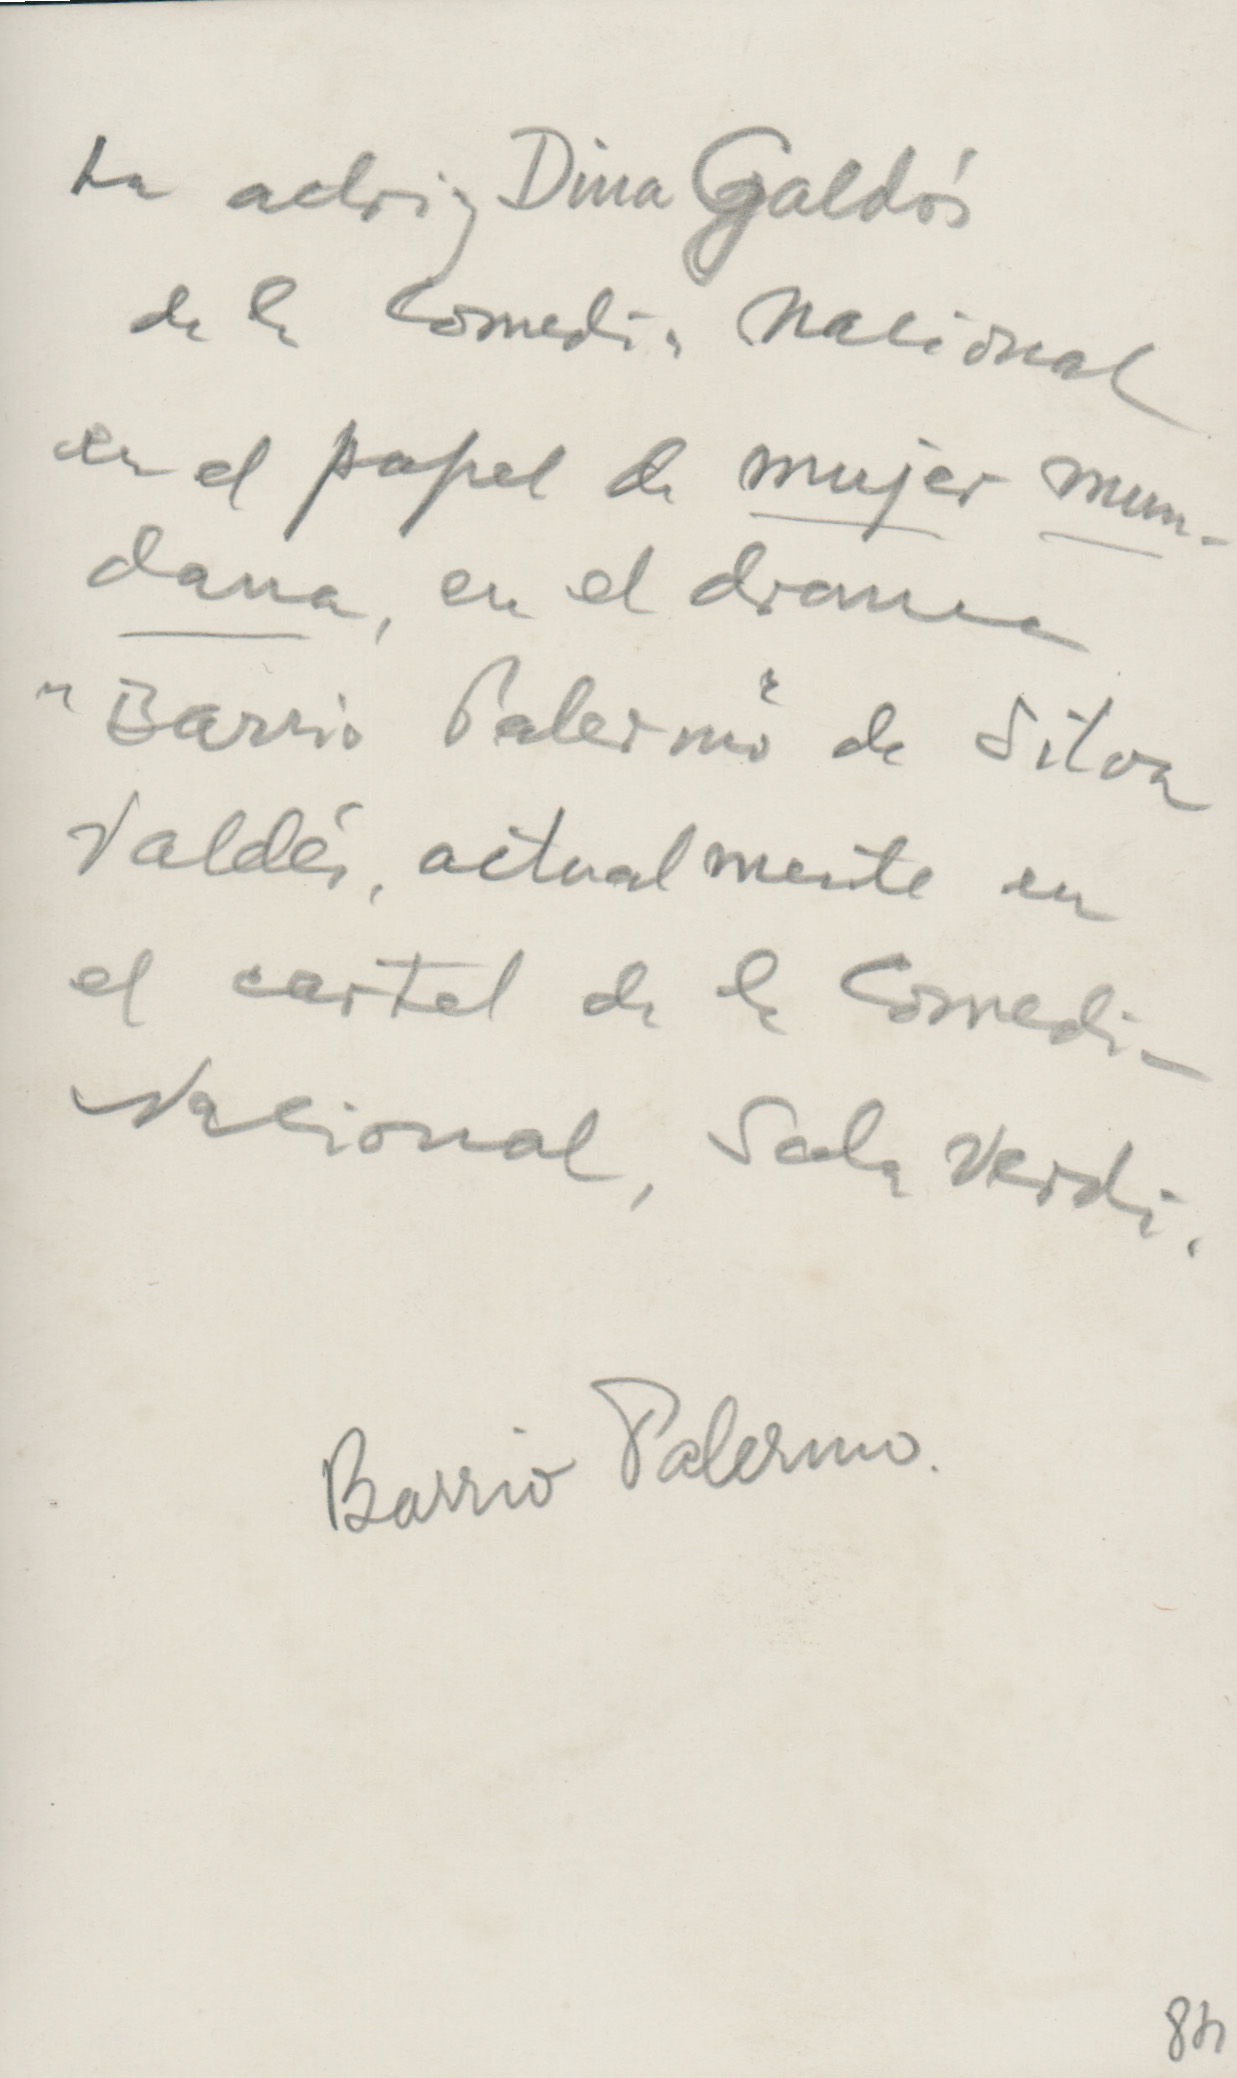 La actriz Dina Galdós
de la Comedia Nacional
en el papel de mujer mun-
dana, en el drama
"Barrio Palermo" de Silva
Valdés, actualmente en
el cartel de la Comedia
Nacional, Sala Verdi.
Barrio Palermo.